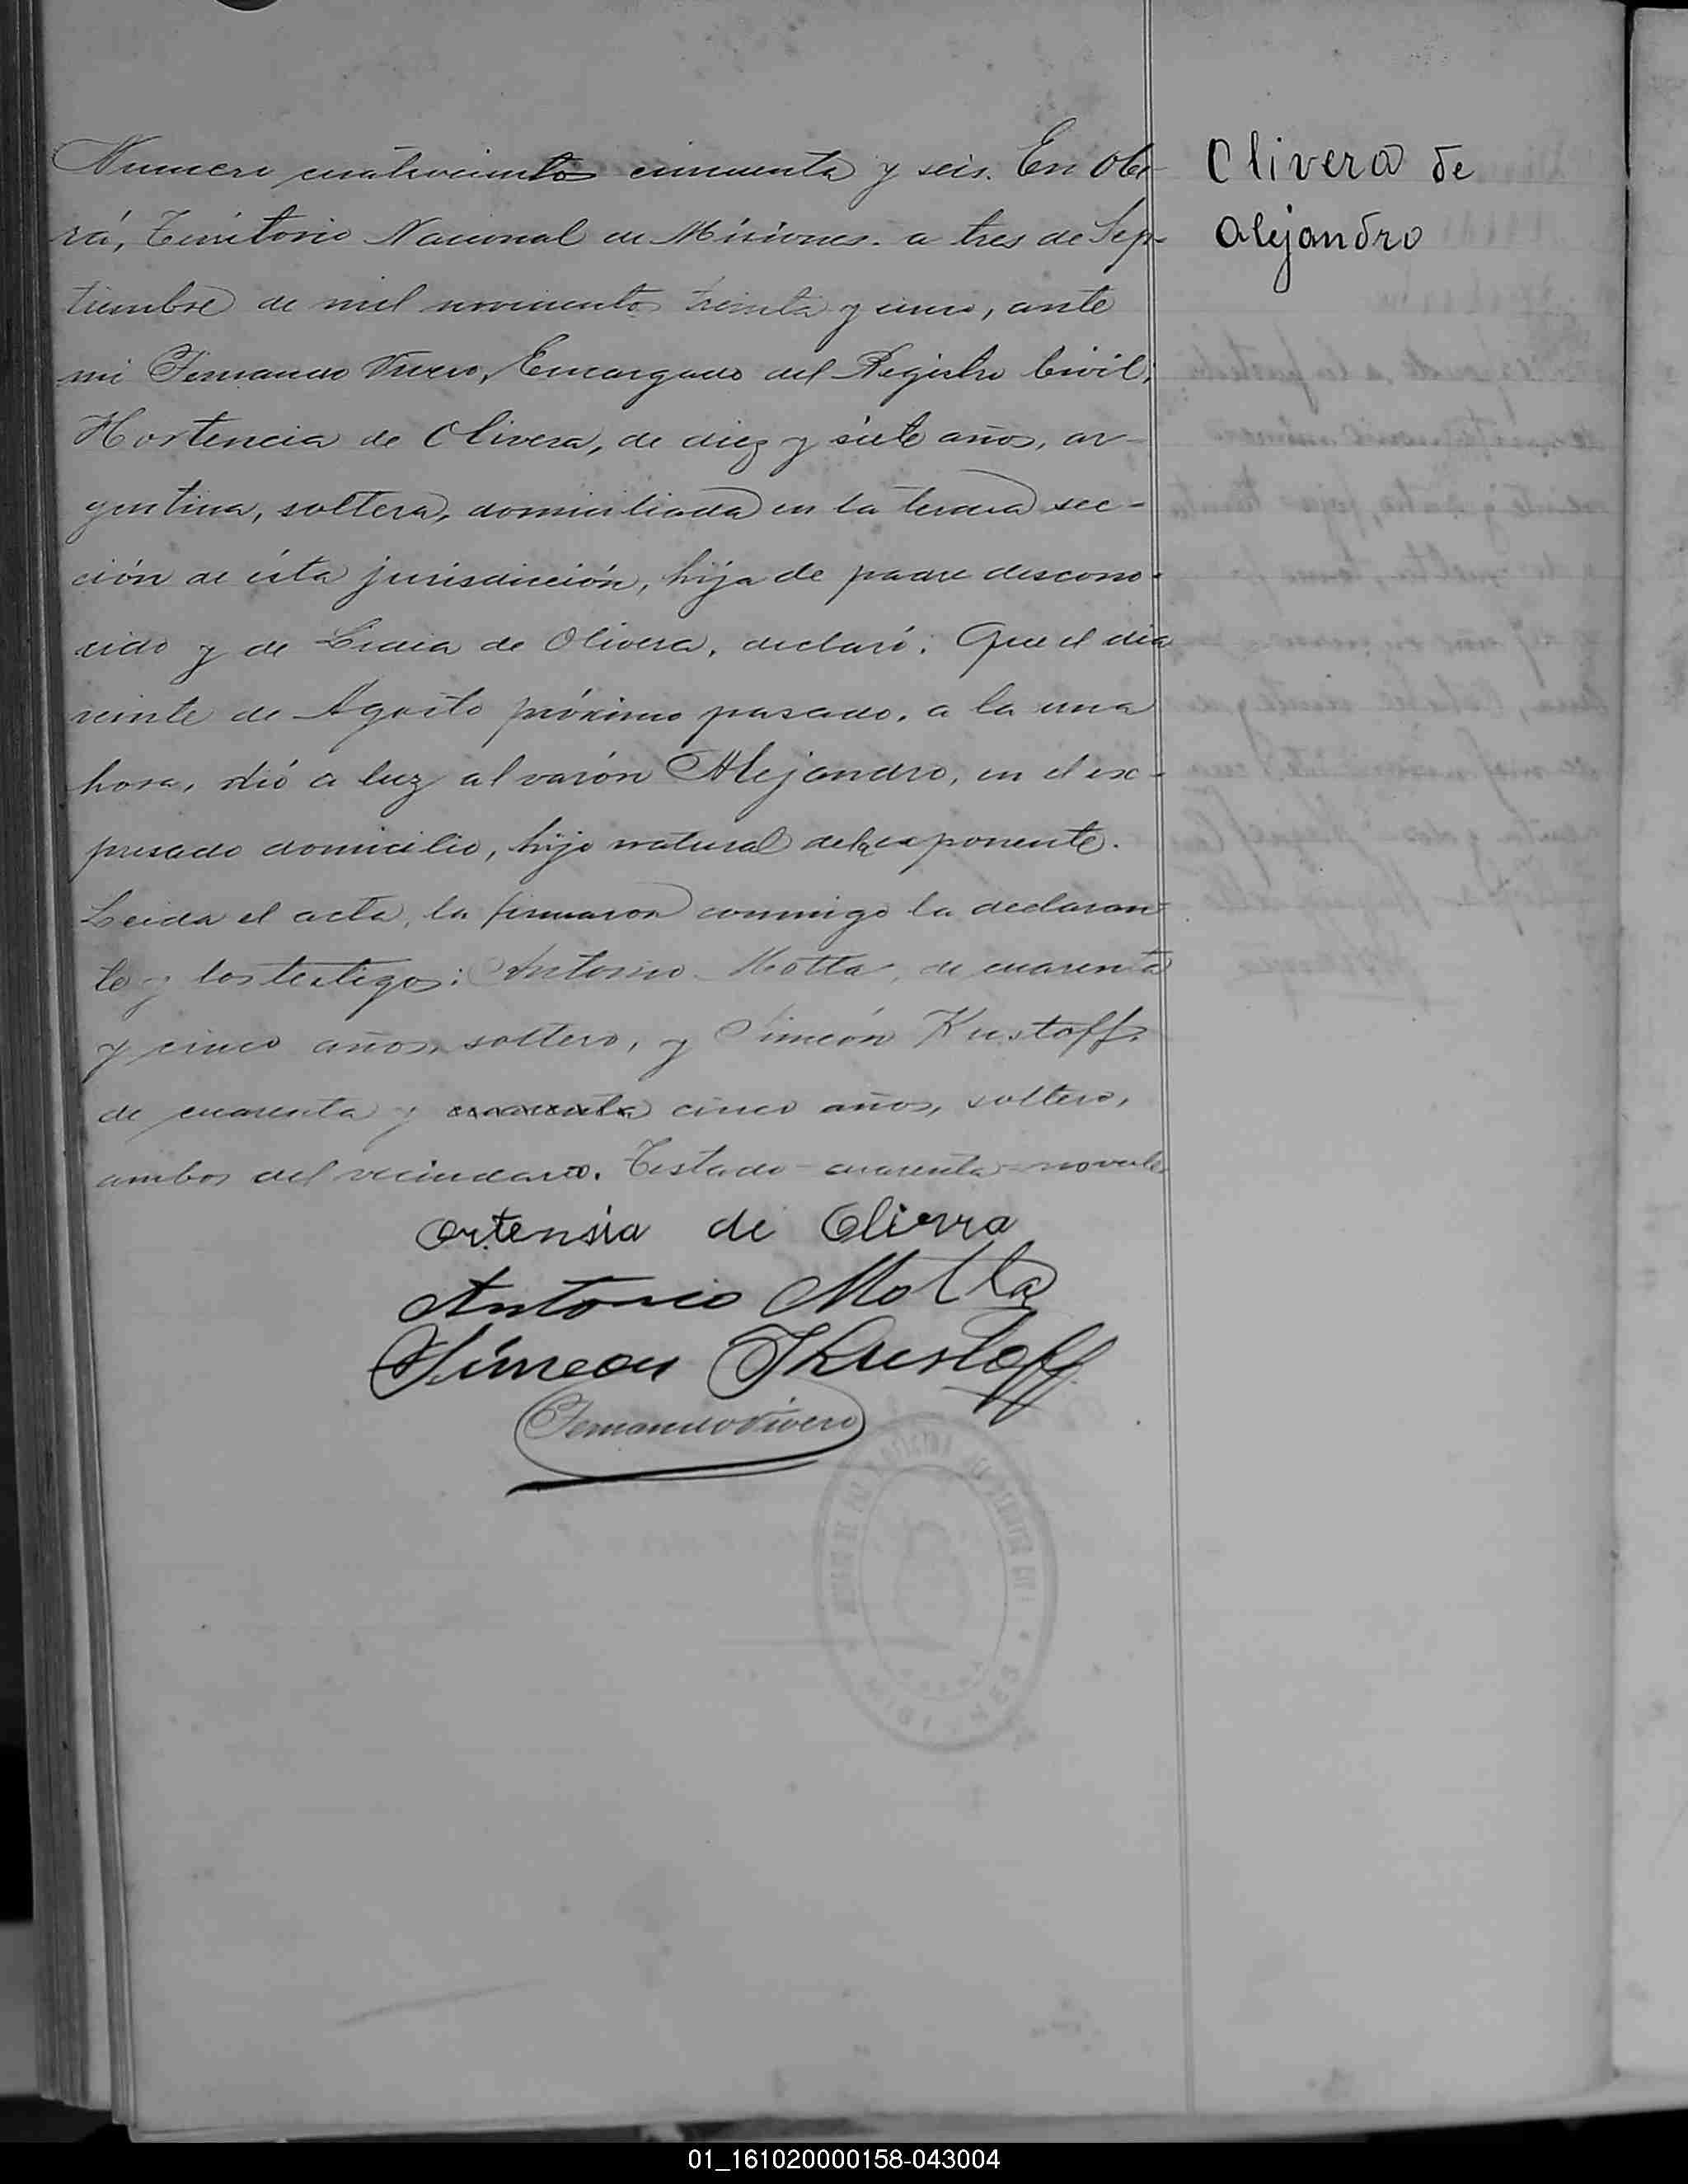 Numero cuatrocientos cincuenta y seis. En Obe-
rá, Territorio Nacional de Misiones. a tres de Sep-
tiembre de mil novecientos treinta y cinco, ante
mi Fernando Vivero, Encargado del Registro Civil,
Hortencia de Olivera, de diez y siete años, ar-
gentina, soltera, domiciliada en la tercera sec-
ción de ésta jurisdicción, hija de padre descono-
cido y de Lidia de Olivera, declaró: Que el dia
veinte de Agosto próximo pasado, a la una
hora, dió a luz al varón Alejandro, en el ex-
presado domicilio, hijo natural de la exponente.
Leida el acta, la firmaron conmigo la declaran-
te y los testigos: Antonio Motta, de cuarenta
y cinco años, soltero, y Simeón Kustoff,
de cuarenta y cuarenta cinco años, soltero,
ambos del vecindario. Testado-cuarenta-no vale
Ortensia de Olivra
Antonio Motta
Simeon Khustoff
Fernando Vivero
Olivera de
Alejandro
01_161020000158-043004